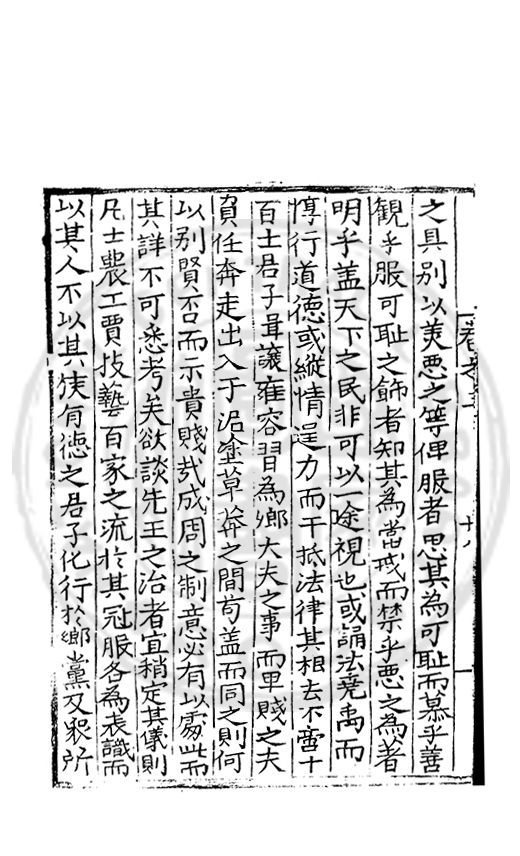 之具別以美惡之等俾服者思其為可恥而慕乎善
觀乎服可恥之飾者知其為當戒而禁乎惡之為著
明乎盖天下之民非可以一途視也或誦法堯禹而
惇行道德或縱情逞力而干抵法律其相去不啻十
百士君子揖讓雍容習為鄉大夫之事而卑賤之夫
負任奔走出入于泥塗草莽之間苟盖而同之則何
以別賢否而示貴賤㦲成周之制意必有以處此而
其詳不可悉考矣欲談先王之治者宜稍定其儀則
凡士農工賈技藝百家之流於其冠服各為表識而
以其人不以其族有德之君子化行於鄉黨及衆所